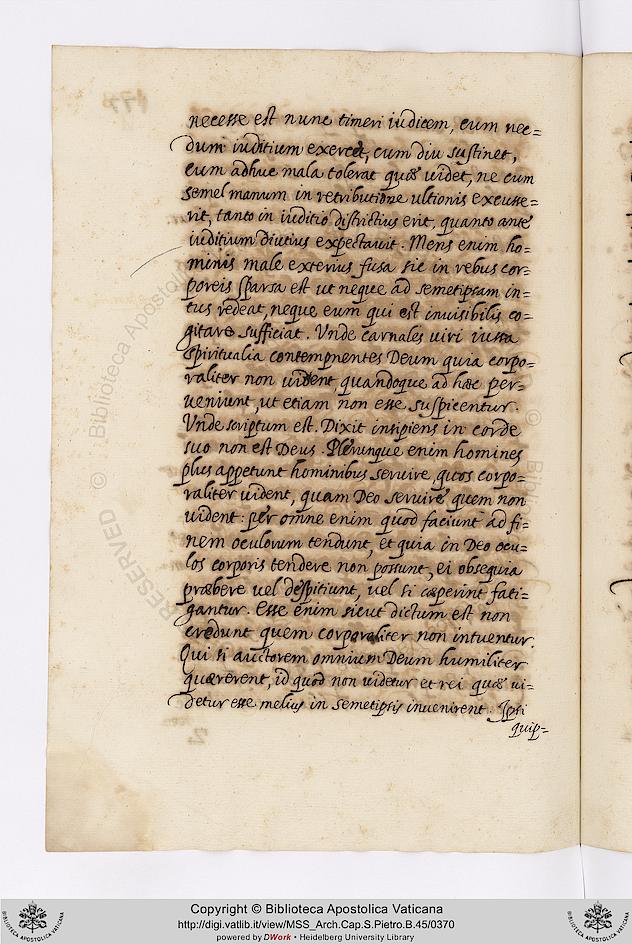 necesse est nunc timeri iudicem, cum nec=
dum iuditium exercet, cum diu sustinet,
cum adhuc mala tolerat quæ uidet, ne cum
semel manum in retributione ultionis excusse=
rit, tanto in iuditio districtius erit, quanto ante
iuditium diutius expectauit. Mens enim ho=
minis male exterius fusa sic in rebus cor=
poreis sparsa est ut neque ad semetipsam in=
tus redeat, neque eum qui est inuisibilis co=
gitare sufficiat. Vnde carnales uiri iussa
spiritualia contempnentes Deum quia corpo=
raliter non uident, quandoque ad hæc per=
ueniunt, ut etiam non esse suspicentur.
Vnde scriptum est. Dixit insipiens in corde
suo non est Deus. Plerunque enim homines
plus appetunt hominibus seruire, quos corpo=
raliter uident, quam Deo seruire quem non
uident: per omne enim quod faciunt ad fi=
nem oculorum tendunt, et quia in Deo ocu=
los corporis tendere non possunt, ei obsequia
præbere uel despitiunt, uel si cæperint fati=
gantur. Esse enim sicut dictum est non
credunt quem corporaliter non intuentur.
Qui si auctorem omnium Deum humiliter
quærerent, id quod non uidetur et rei quæ ui=
detur esse melius in semetipsis inuenirent. Ipsi
quip=
RESERVED © Biblioteca Apostolica
Copyright © Biblioteca Apostolica Vaticana
http://digi.vatlib.it/view/MSS_Arch.Cap.S.Pietro.B.45/0370
powered by DWork • Heidelberg University Library